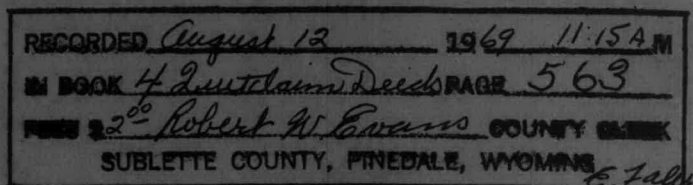 RECORDED August 12 1969 11:15 A M
IN BOOK 4 Quitclaim Deeds PAGE 563
FEES $2.00 Robert W Evans COUNTY CLERK
SUBLETTE COUNTY, PINEDALE, WYOMING